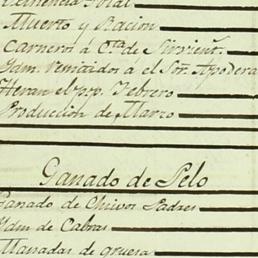 Muerto y Racion
Carneros á Cta de Sirvient.
Ydm. remitidos á el Sor. Apodera
Heran el p.p. Febrero
Produccion de Marzo
Ganado de Pelo
Ganado de Chivos Padres
Ydm de Cabras
Manadas de gruesa